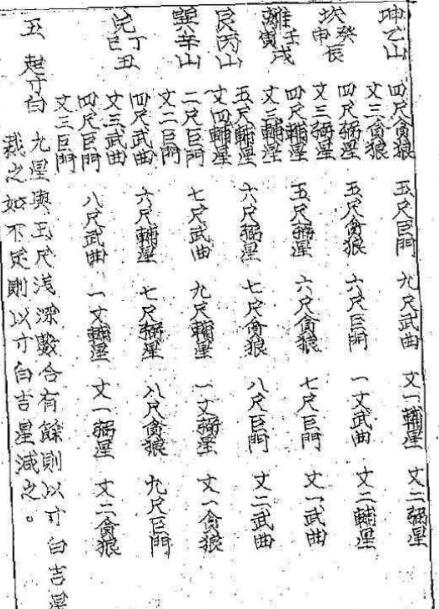 坤乙山
四尺貪狼 五尺巨門 九尺武曲 丈一輔星 丈二弼星
丈三貪狼
坎癸申辰
四尺弼星 五尺貪狼 六尺巨門 一丈武曲 丈二輔星
丈三弼星
離壬寅戌
四尺輔星 五尺弼星 六尺貪狼 七尺巨門 丈一武曲
丈三輔星
艮丙山
五尺輔星 六尺弼星 七尺貪狼 八尺巨門 丈二武曲
丈四輔星
巽辛山
二尺巨門 七尺武曲 九尺輔星 一丈弼星 丈一貪狼
丈二巨門
兌丁巳丑
四尺武曲 六尺輔星 七尺弼星 八尺貪狼 九尺巨門
丈三武曲
四尺巨門 八尺武曲 一丈輔星 丈一弼星 丈二貪狼
丈三巨門
五 起寸白 九星與玉尺淺深數合有餘則以寸白吉星
裁之如不足則以寸白吉星減之。